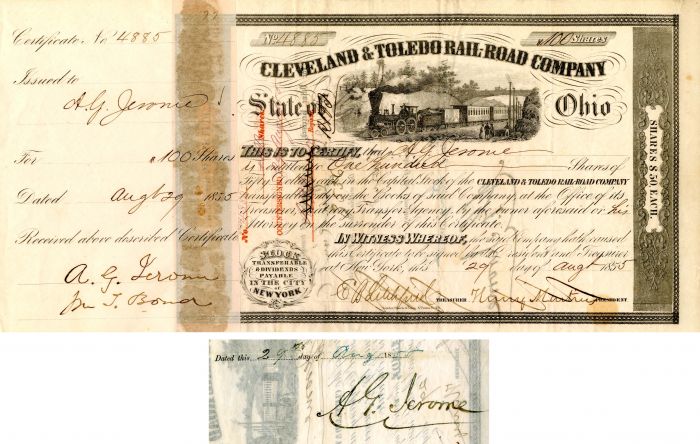 Certificate No 4885
Issued to
A. G. Jerome
For 100 Shares
Dated Augt 29 1855
Received above described Certificate
A. G. Jerome
No 4885
100 Shares
CLEVELAND & TOLEDO RAIL-ROAD COMPANY
State of Ohio
THIS IS TO CERTIFY, that A G Jerome
is entitled to One Hundred Shares of
Fifty Dollars each in the Capital Stock of the CLEVELAND & TOLEDO RAIL-ROAD COMPANY
transferable only on the Books of said Company, at the Office of its
Treasurer, or at any Transfer Agency, by the owner aforesaid or his
Attorney on the surrender of this Certificate.
IN WITNESS WHEREOF, the said Company hath caused
this Certificate to be signed by its President and Treasurer
at New York, this 29 day of Augt 1855
TREASURER
PRESIDENT
STOCK
TRANSFERABLE
& DIVIDENDS
PAYABLE
IN THE CITY
OF
NEW YORK
SHARES $50 EACH
Dated this 29th day of Aug 1855
A G Jerome